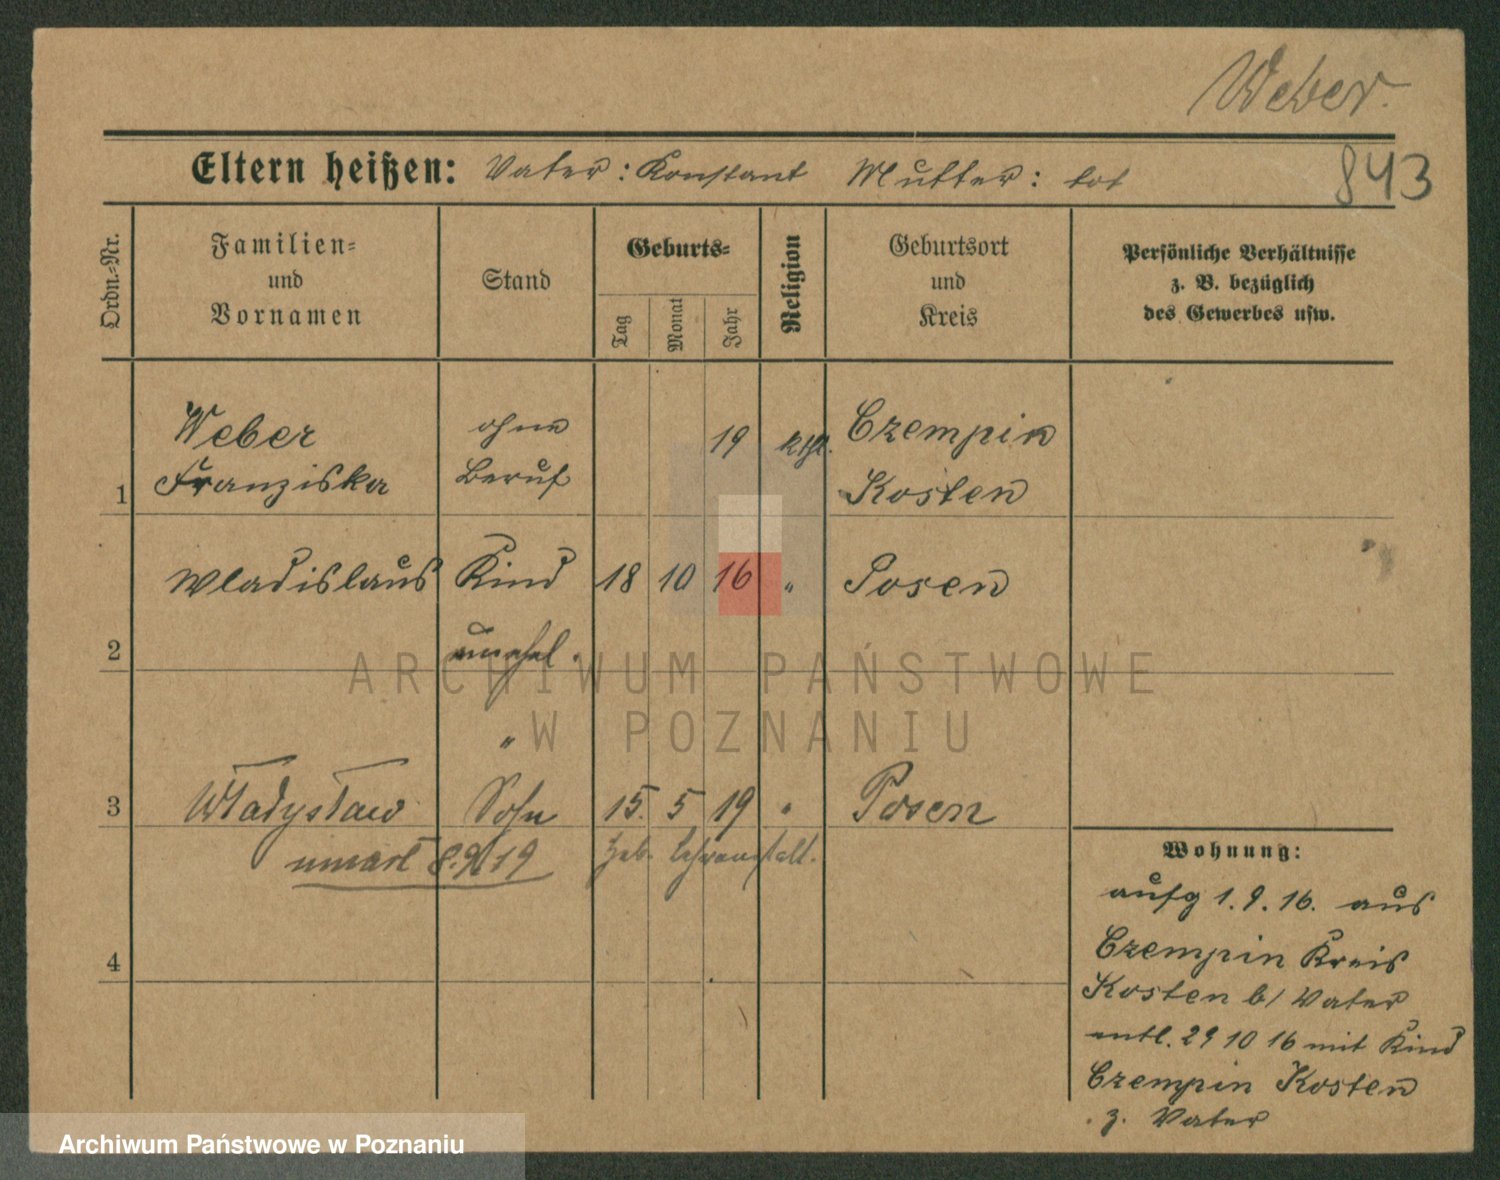 Weber.
Eltern heißen: Vater: Konstant Mutter: tot
843
Ordn.-Nr.
Familien-
und
Vornamen
Stand
Geburts-
Tag
Monat
Jahr
Religion
Geburtsort
und
Kreis
Persönliche Verhältnisse
z. B. bezüglich
des Gewerbes usw.
Weber ohne 19 kth. Czempin
1 Franziska Beruf Kosten
Wladislaus Kind 18 10 16 " Posen
2 unehel.
"
3 Władysław Sohn 15. 5 19 " Posen
8.9.19 Heb. Lehranstalt.
4
Wohnung:
aufg 1.9.16. aus
Czempin Kreis
Kosten b/ Vater
entl. 29 10 16 mit Kind
Czempin Kosten
z. Vater
ARCHIWUM PAŃSTWOWE
W POZNANIU
Archiwum Państwowe w Poznaniu